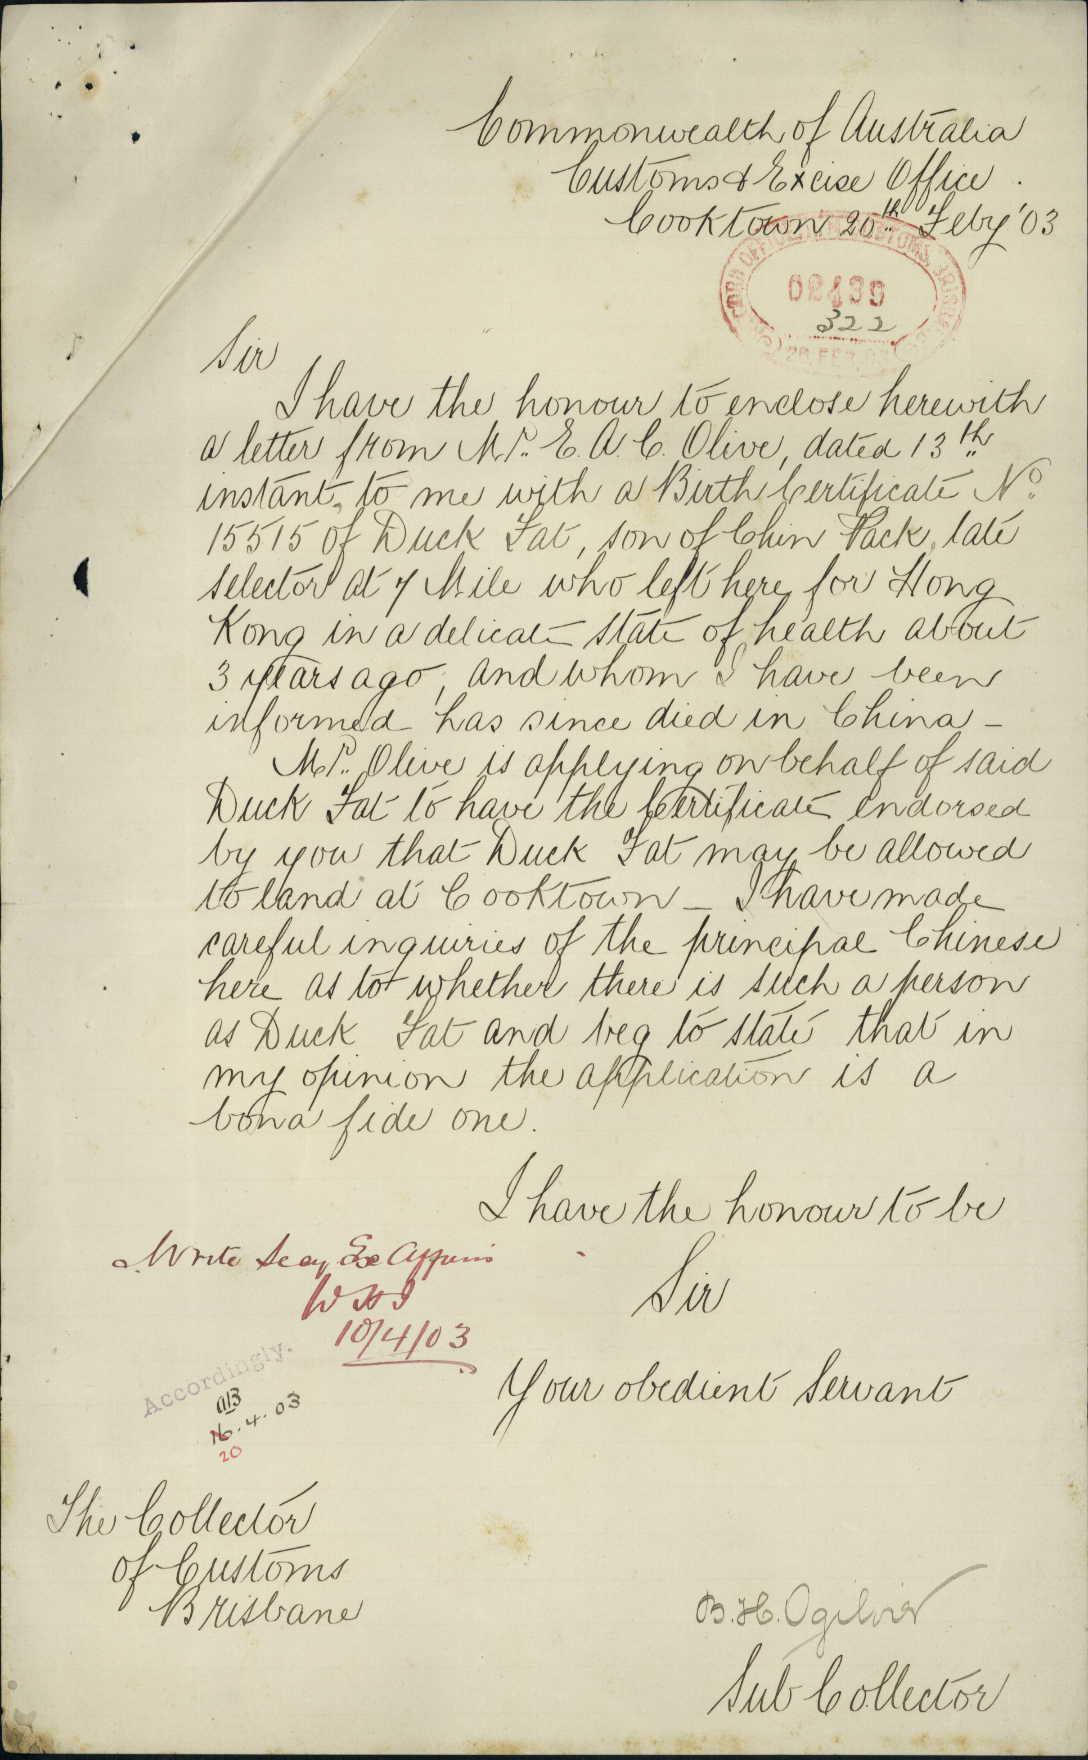 Commonwealth of Australia
Customs & Excise Office.
Cooktown 20th Feby '03
02439
322
Sir
I have the honour to enclose herewith
a letter from Mr. E. A. C. Olive, dated 13th
instant, to me with a Birth Certificate No.
15515 of Duck Fat, son of Chin Pack, late
selector at 7 Mile who left here for Hong
Kong in a delicate state of health about
3 years ago, and whom I have been
informed has since died in China –
Mr. Olive is applying on behalf of said
Duck Fat to have the Certificate endorsed
by you that Duck Fat may be allowed
to land at Cooktown – I have made
careful inquiries of the principal Chinese
here as to whether there is such a person
as Duck Fat and beg to state that in
my opinion the application is a
bona fide one.
I have the honour to be
Sir
Your obedient Servant
Write Secy Ex Affairs
WHI
10/4/03
Accordingly.
AB
16.4.03
20
The Collector
of Customs
Brisbane
B. H. Ogilvie
Sub Collector